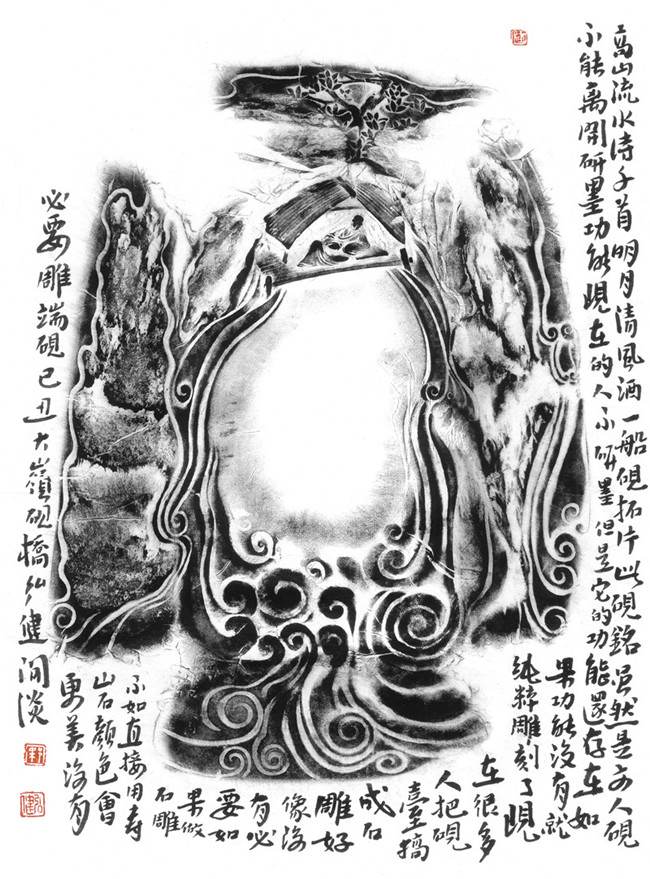 高山流水诗千首明月清風酒一船硯拓片此硯銘虽然是文人硯
不能离開研墨功能現在的人不研墨但是它的功能還存在如
果功能没有就
纯粹雕刻了現
在很多
人把硯
臺搞
成石
雕好
像没
有必
要如
果做
石雕
不如直接用寿
山石颜色會
更美没有
必要雕端硯己丑大嶺硯橋弘健閒淡